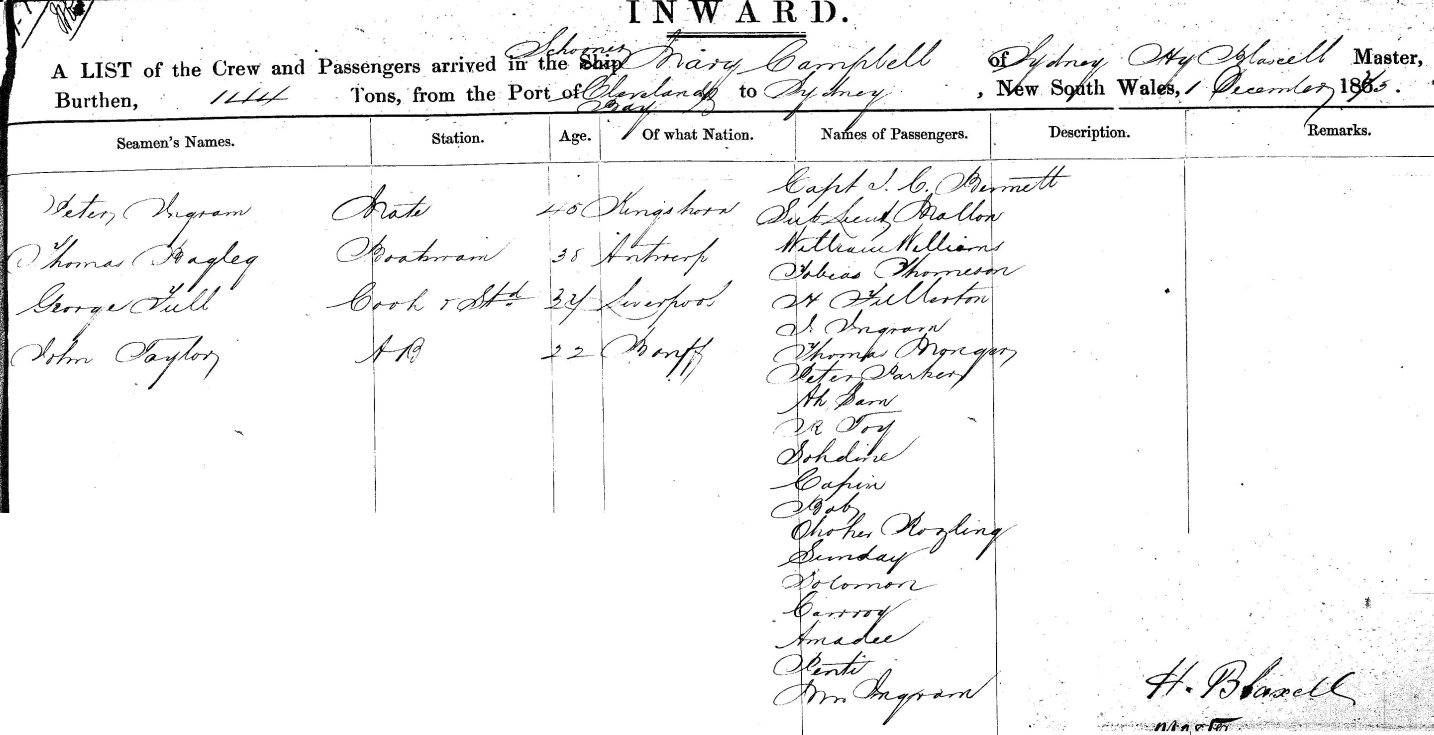 INWARD.
A LIST of the Crew and Passengers arrived in the Ship Schooner Mary Campbell of Sydney Hy Blaxell Master,
Burthen, 144 Tons, from the Port of Cleveland Bay to Sydney, New South Wales, 1 December 187
Seamen's Names. Station. Age. Of what Nation. Names of Passengers. Description. Remarks.
Capt J. C. Bennett
Peter Ingram Mate 45 Kinghorn Sub Lieut Mallon
Thomas Bagley Boatswain 38 Antwerp William Williams
Tobias Thomeson
George Tull Cook & Std Liverpool H Fullerton
J. Ingram
John Taylor AB 22 Banff Thomas Monger
Peter Parker
Ah Sam
Toy
Sohdine
Capin
Bob
Choker Rozling
Sunday
Solomon
Carroy
Amadee
Penti
Wm Ingram
H. Blaxell
Master